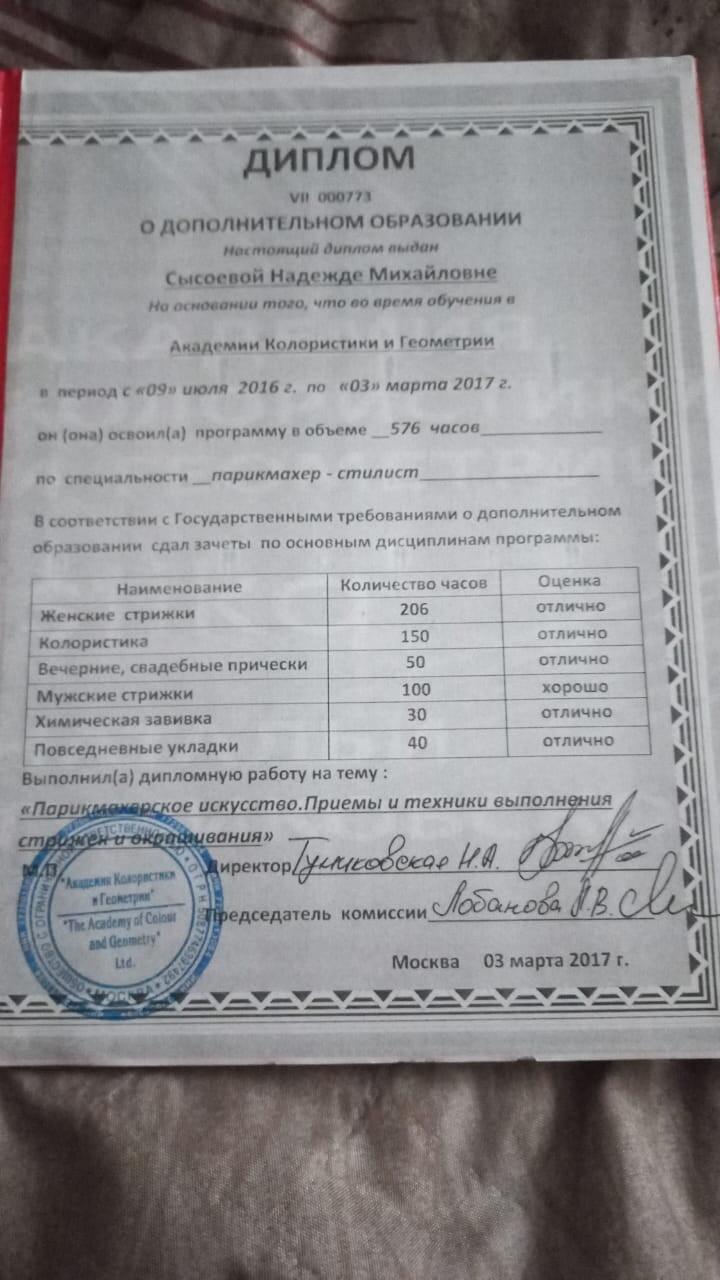 ДИПЛОМ
VII 000773
О ДОПОЛНИТЕЛЬНОМ ОБРАЗОВАНИИ
Настоящий диплом выдан
Сысоевой Надежде Михайловне
На основании того, что во время обучения в
Академии Колористики и Геометрии
в период с «09» июля 2016 г. по «03» марта 2017 г.
он (она) освоил(а) программу в объеме __576 часов
по специальности __парикмахер - стилист
В соответствии с Государственными требованиями о дополнительном
образовании сдал зачеты по основным дисциплинам программы:
Наименование Количество часов Оценка
Женские стрижки 206 отлично
Колористика 150 отлично
Вечерние, свадебные прически 50 отлично
Мужские стрижки 100 хорошо
Химическая завивка 30 отлично
Повседневные укладки 40 отлично
Выполнил(а) дипломную работу на тему :
«Парикмахерское искусство.Приемы и техники выполнения
стрижек и окрашивания»
М.П. Директор Н.А.
Председатель комиссии Лобанова Л.В.
"Академия Колористики
и Геометрии"
"The Academy of Colour
and Geometry"
Ltd.
МОСКВА
Москва 03 марта 2017 г.